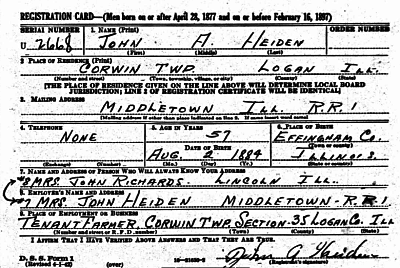 REGISTRATION CARD—(Men born on or after April 28, 1877 and on or before February 16, 1897)
SERIAL NUMBER 1. NAME (Print) ORDER NUMBER
U 2668 JOHN A. HEIDEN
(First) (Middle) (Last)
2. PLACE OF RESIDENCE (Print)
CORWIN TWP. LOGAN ILL.
(Number and street) (Town, township, village, or city) (County) (State)
[THE PLACE OF RESIDENCE GIVEN ON THE LINE ABOVE WILL DETERMINE LOCAL BOARD
JURISDICTION; LINE 2 OF REGISTRATION CERTIFICATE WILL BE IDENTICAL]
3. MAILING ADDRESS
MIDDLETOWN ILL. R.R.1
[Mailing address if other than place indicated on line 2. If same insert word same]
4. TELEPHONE 5. AGE IN YEARS 6. PLACE OF BIRTH
NONE 57 EFFINGHAM CO.
DATE OF BIRTH (Town or county)
AUG. 2 1884 ILLINOIS.
(Exchange) (Number) (Mo.) (Day) (Yr.) (State or country)
7. NAME AND ADDRESS OF PERSON WHO WILL ALWAYS KNOW YOUR ADDRESS
8 MRS. JOHN RICHARDS. LINCOLN ILL.
8. EMPLOYER'S NAME AND ADDRESS
7 MRS. JOHN HEIDEN MIDDLETOWN - R.R.1.
9. PLACE OF EMPLOYMENT OR BUSINESS
TENANT FARMER, CORWIN TWP. SECTION-35 LOGAN CO. ILL
(Number and street or R. F. D. number) (Town) (County) (State)
I AFFIRM THAT I HAVE VERIFIED ABOVE ANSWERS AND THAT THEY ARE TRUE.
D. S. S. Form 1
(Revised 4-1-42) (over) John A Heiden
(Registrant's signature)